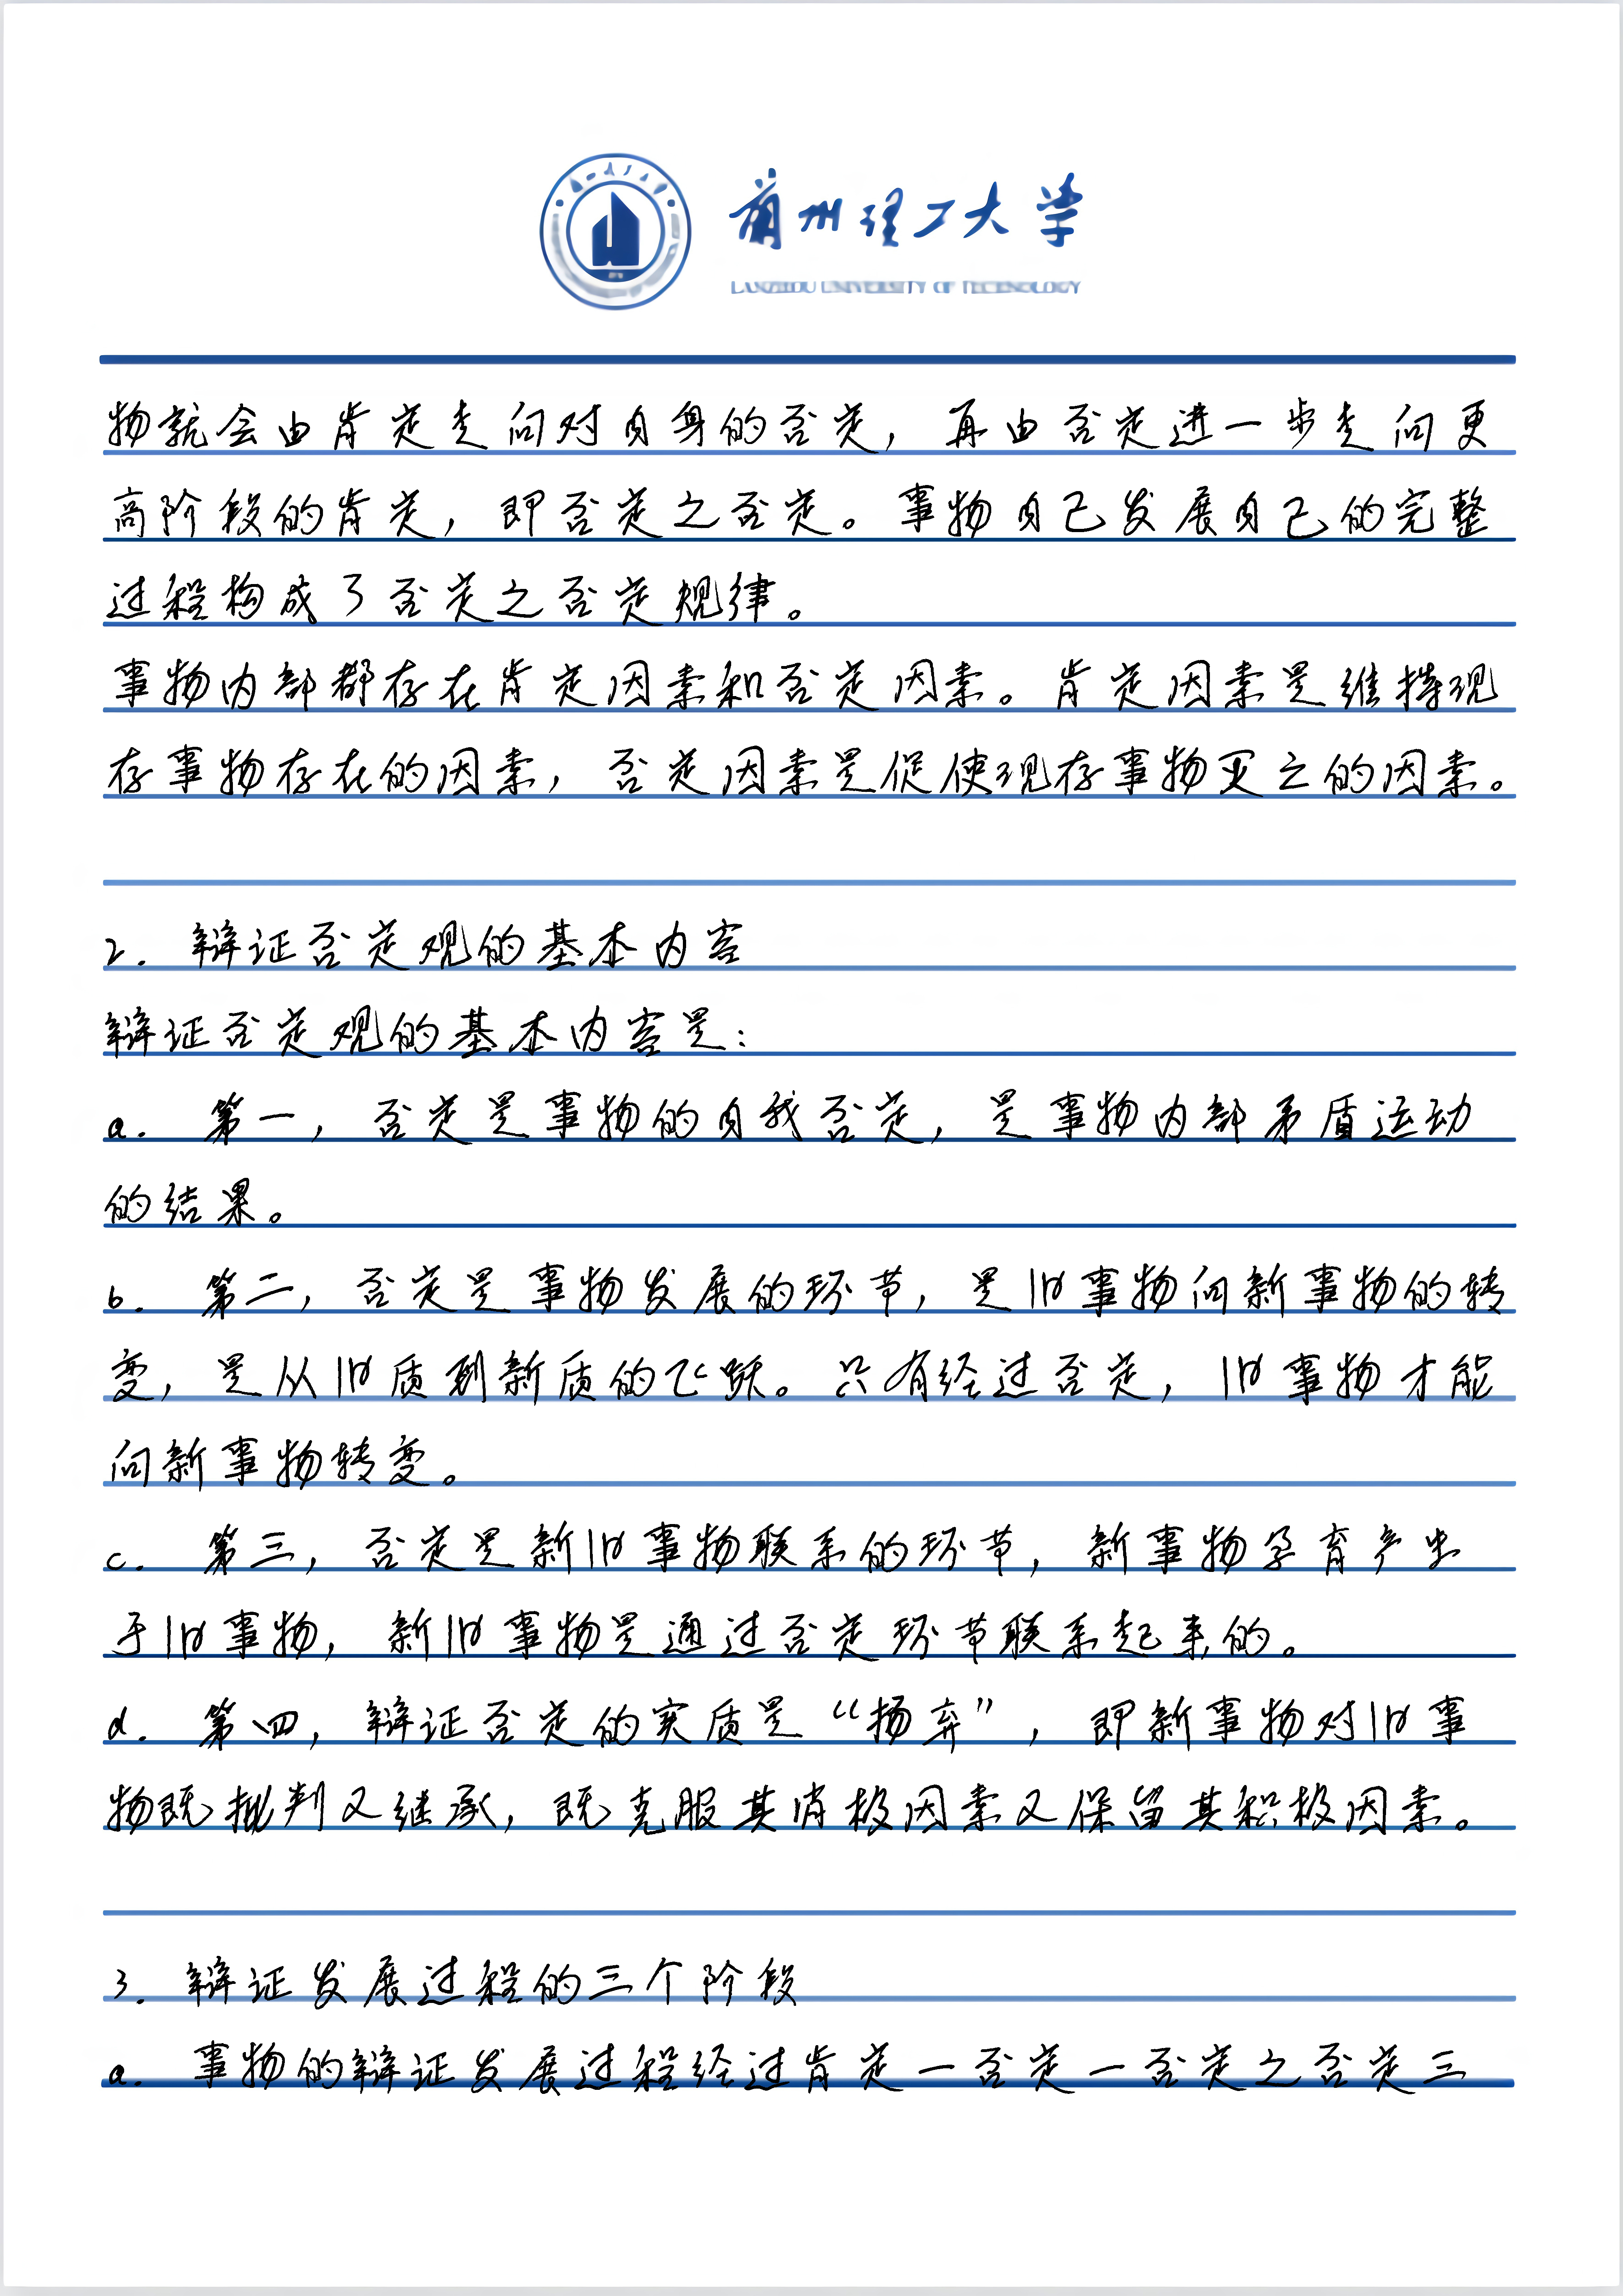 兰州理工大学
LANZHOU UNIVERSITY OF TECHNOLOGY
物就会由肯定走向对自身的否定，再由否定进一步走向更
高阶段的肯定，即否定之否定。事物自己发展自己的完整
过程构成了否定之否定规律。
事物内部都存在肯定因素和否定因素。肯定因素是维持现
存事物存在的因素，否定因素是促使现存事物灭亡的因素。
2. 辩证否定观的基本内容
辩证否定观的基本内容是：
a. 第一，否定是事物的自我否定，是事物内部矛盾运动
的结果。
b. 第二，否定是事物发展的环节，是旧事物向新事物的转
变，是从旧质到新质的飞跃。只有经过否定，旧事物才能
向新事物转变。
c. 第三，否定是新旧事物联系的环节，新事物孕育产生
于旧事物，新旧事物是通过否定环节联系起来的。
d. 第四，辩证否定的实质是“扬弃”，即新事物对旧事
物既批判又继承，既克服其消极因素又保留其积极因素。
3. 辩证发展过程的三个阶段
a. 事物的辩证发展过程经过肯定一否定一否定之否定三